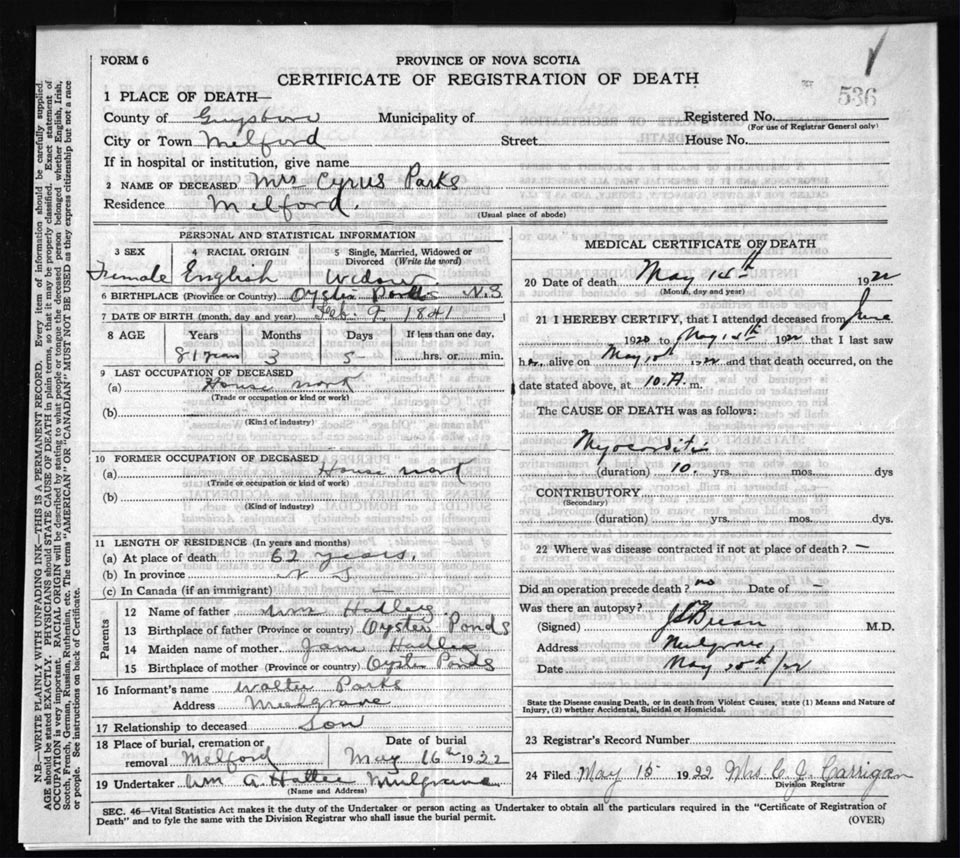 FORM 6
PROVINCE OF NOVA SCOTIA
CERTIFICATE OF REGISTRATION OF DEATH
536
1 PLACE OF DEATH—
County of Guysboro Municipality of Registered No.
(For use of Registrar General only)
City or Town Melford Street House No.
If in hospital or institution, give name
2 NAME OF DECEASED Mrs Cyrus Parks
Residence Melford.
(Usual place of abode)
PERSONAL AND STATISTICAL INFORMATION
3 SEX 4 RACIAL ORIGIN 5 Single, Married, Widowed or Divorced (Write the word)
Female English Widow
6 BIRTHPLACE (Province or Country) Oyster Ponds N.S
7 DATE OF BIRTH (month, day and year) Feb: 9. 1841
8 AGE Years Months Days If less than one day,
81 years 3 5 hrs. or min.
9 LAST OCCUPATION OF DECEASED
(a) House work
(Trade or occupation or kind or work)
(b)
(Kind of industry)
10 FORMER OCCUPATION OF DECEASED
(a) House work
(Trade or occupation or kind of work)
(b)
(Kind of industry)
11 LENGTH OF RESIDENCE (In years and months)
(a) At place of death 62 years.
(b) In province N S
(c) In Canada (if an immigrant) —
Parents
12 Name of father Wm Hadley
13 Birthplace of father (Province or country) Oyster Ponds
14 Maiden name of mother Jane Hadley
15 Birthplace of mother (Province or country) Oyster Ponds
16 Informant's name Walter Parks
Address Mulgrave
17 Relationship to deceased Son
18 Place of burial, cremation or removal Melford Date of burial May 16th 1922
19 Undertaker Wm A. Mulgrave
(Name and Address)
MEDICAL CERTIFICATE OF DEATH
20 Date of death May 14th 1922
(Month, day and year)
21 I HEREBY CERTIFY, that I attended deceased from June
1920 to May 14th 1922 that I last saw
her alive on May 10th 1922 and that death occurred, on the
date stated above, at 10.A. m.
The CAUSE OF DEATH was as follows:
Myocarditis
(duration) 10. yrs. mos. dys
CONTRIBUTORY
(Secondary)
(duration) yrs. mos. dys.
22 Where was disease contracted if not at place of death? —
Did an operation precede death? no Date of —
Was there an autopsy? no
(Signed) M.D.
Address Mulgrave
Date May 20th/22
State the Disease causing Death, or in death from Violent Causes, state (1) Means and Nature of
Injury, (2) whether Accidental, Suicidal or Homicidal.
23 Registrar's Record Number
24 Filed May 15 1922 Mrs C. J. Carrigan
Division Registrar
SEC. 46—Vital Statistics Act makes it the duty of the Undertaker or person acting as Undertaker to obtain all the particulars required in the "Certificate of Registration of
Death" and to fyle the same with the Division Registrar who shall issue the burial permit.
(OVER)
N.B.—WRITE PLAINLY WITH UNFADING INK—THIS IS A PERMANENT RECORD. Every item of information should be carefully supplied.
AGE should be stated EXACTLY. PHYSICIANS should STATE CAUSE OF DEATH in plain terms, so that it may be properly classified. Exact statement of
OCCUPATION is very important. RACIAL ORIGIN will be described by stating to what people or tongue the deceased person belonged whether English, Irish,
Scotch, French, German, Russian, Ruthenian, etc. The terms "AMERICAN" OR "CANADIAN" MUST NOT BE USED as they express citizenship but not a race
or people. See instructions on back of Certificate.